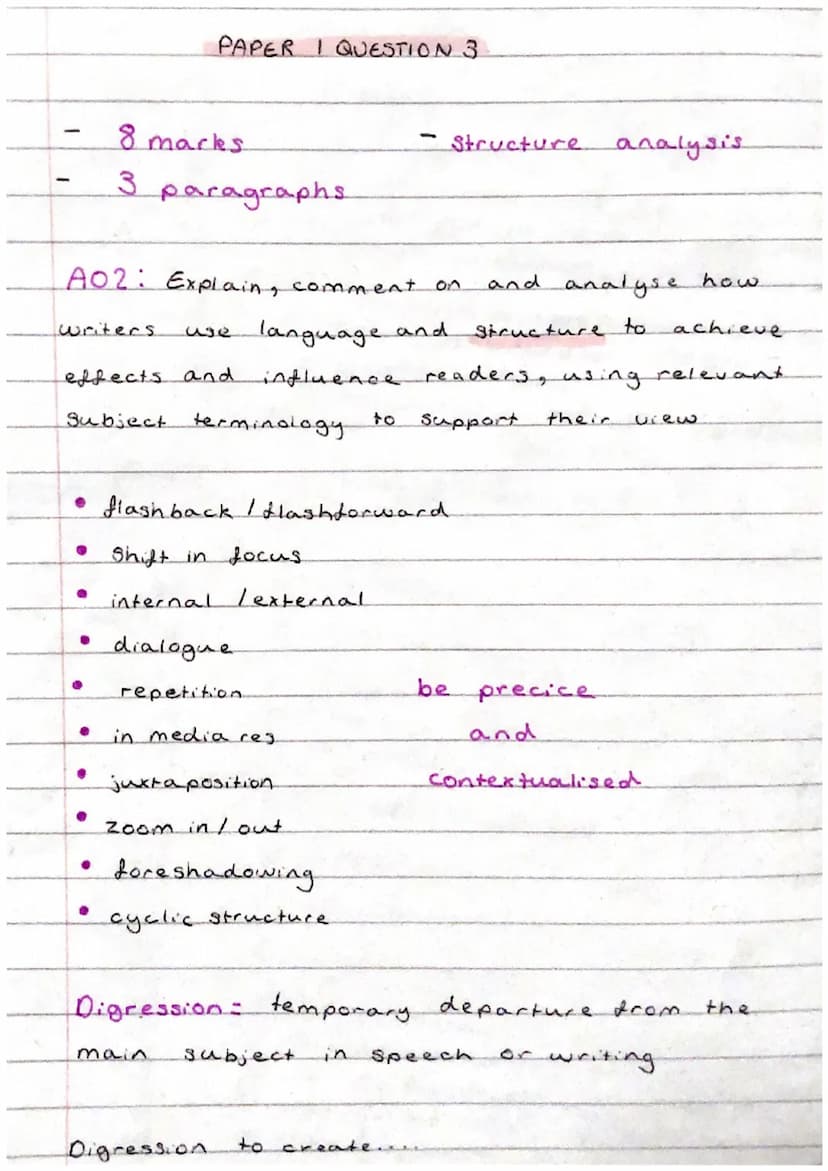 PAPER 1 QUESTION 3
- 8 marks - structure analysis
- 3 paragraphs
AO2: Explain, comment on and analyse how
writers use language and structure to achieve
effects and influence readers, using relevant
subject terminology to support their view
• flashback / flashforward
• shift in focus
• internal / external
• dialogue
• repetition be precice
• in media res and
• juxtaposition contextualised
• zoom in / out
• foreshadowing
• cyclic structure
Digression = temporary departure from the
main subject in speech or writing
Digression to create....